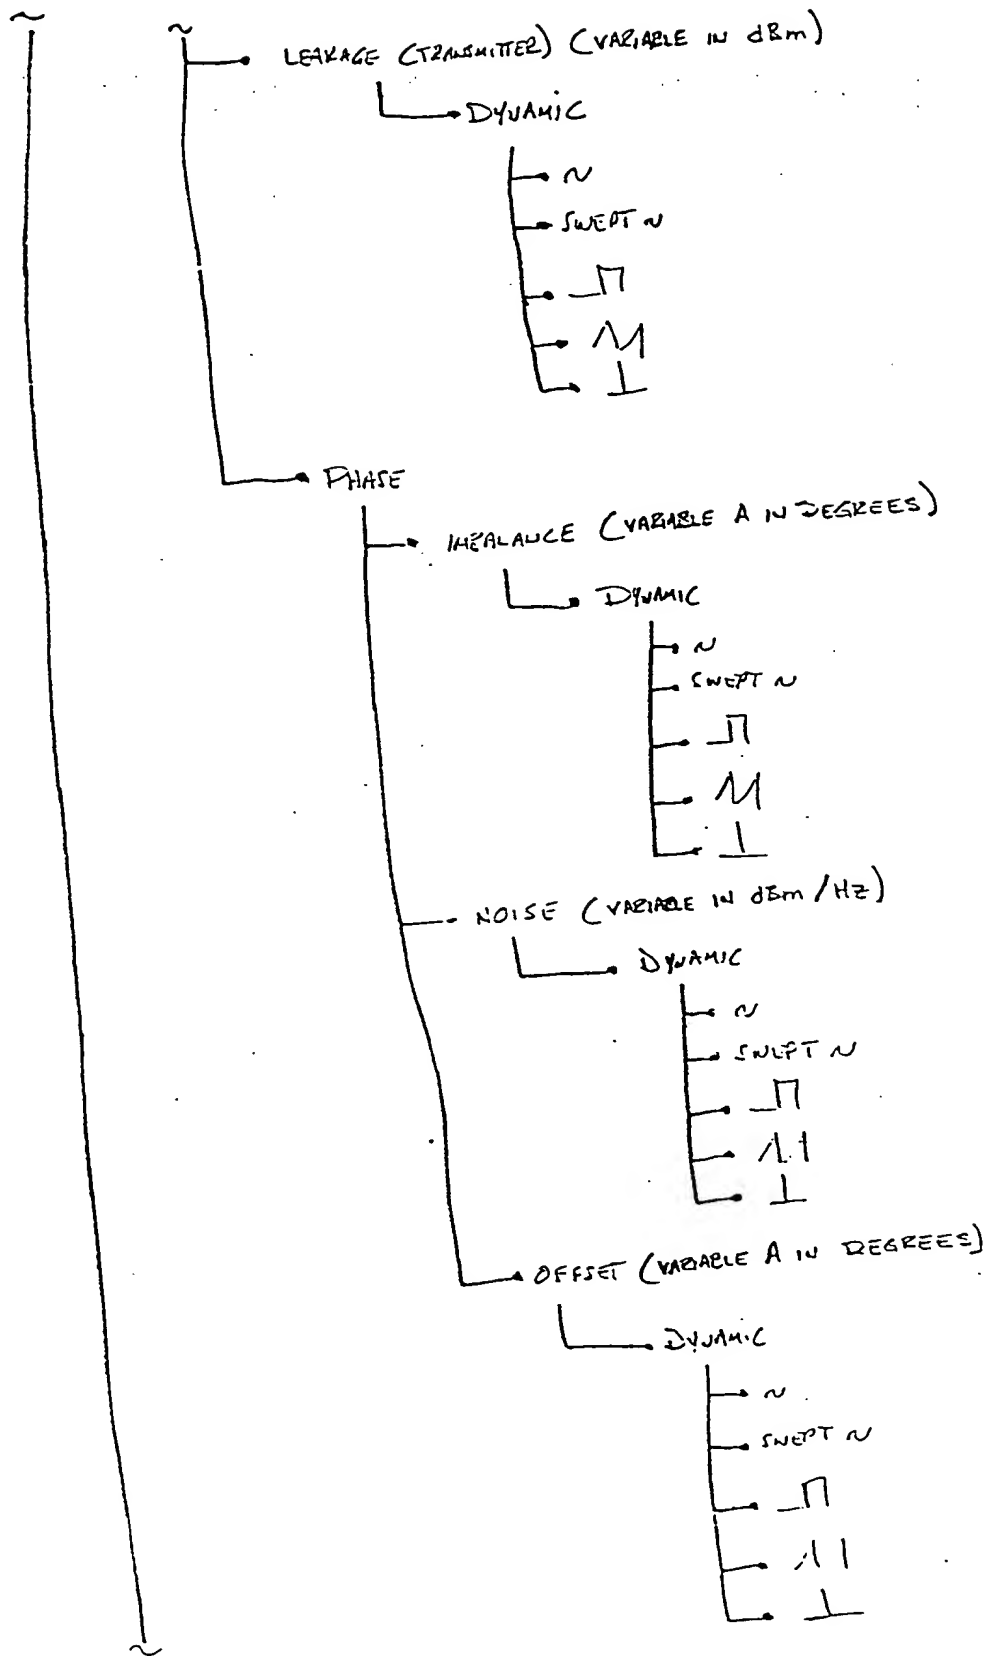 LEAKAGE (TRANSMITTER) (VARIABLE IN dBm)
DYNAMIC
~
SWEPT ~
PHASE
IMBALANCE (VARIABLE Δ IN DEGREES)
DYNAMIC
~
SWEPT ~
NOISE (VARIABLE IN dBm/HZ)
DYNAMIC
~
SWEPT ~
OFFSET (VARIABLE Δ IN DEGREES)
DYNAMIC
~
SWEPT ~